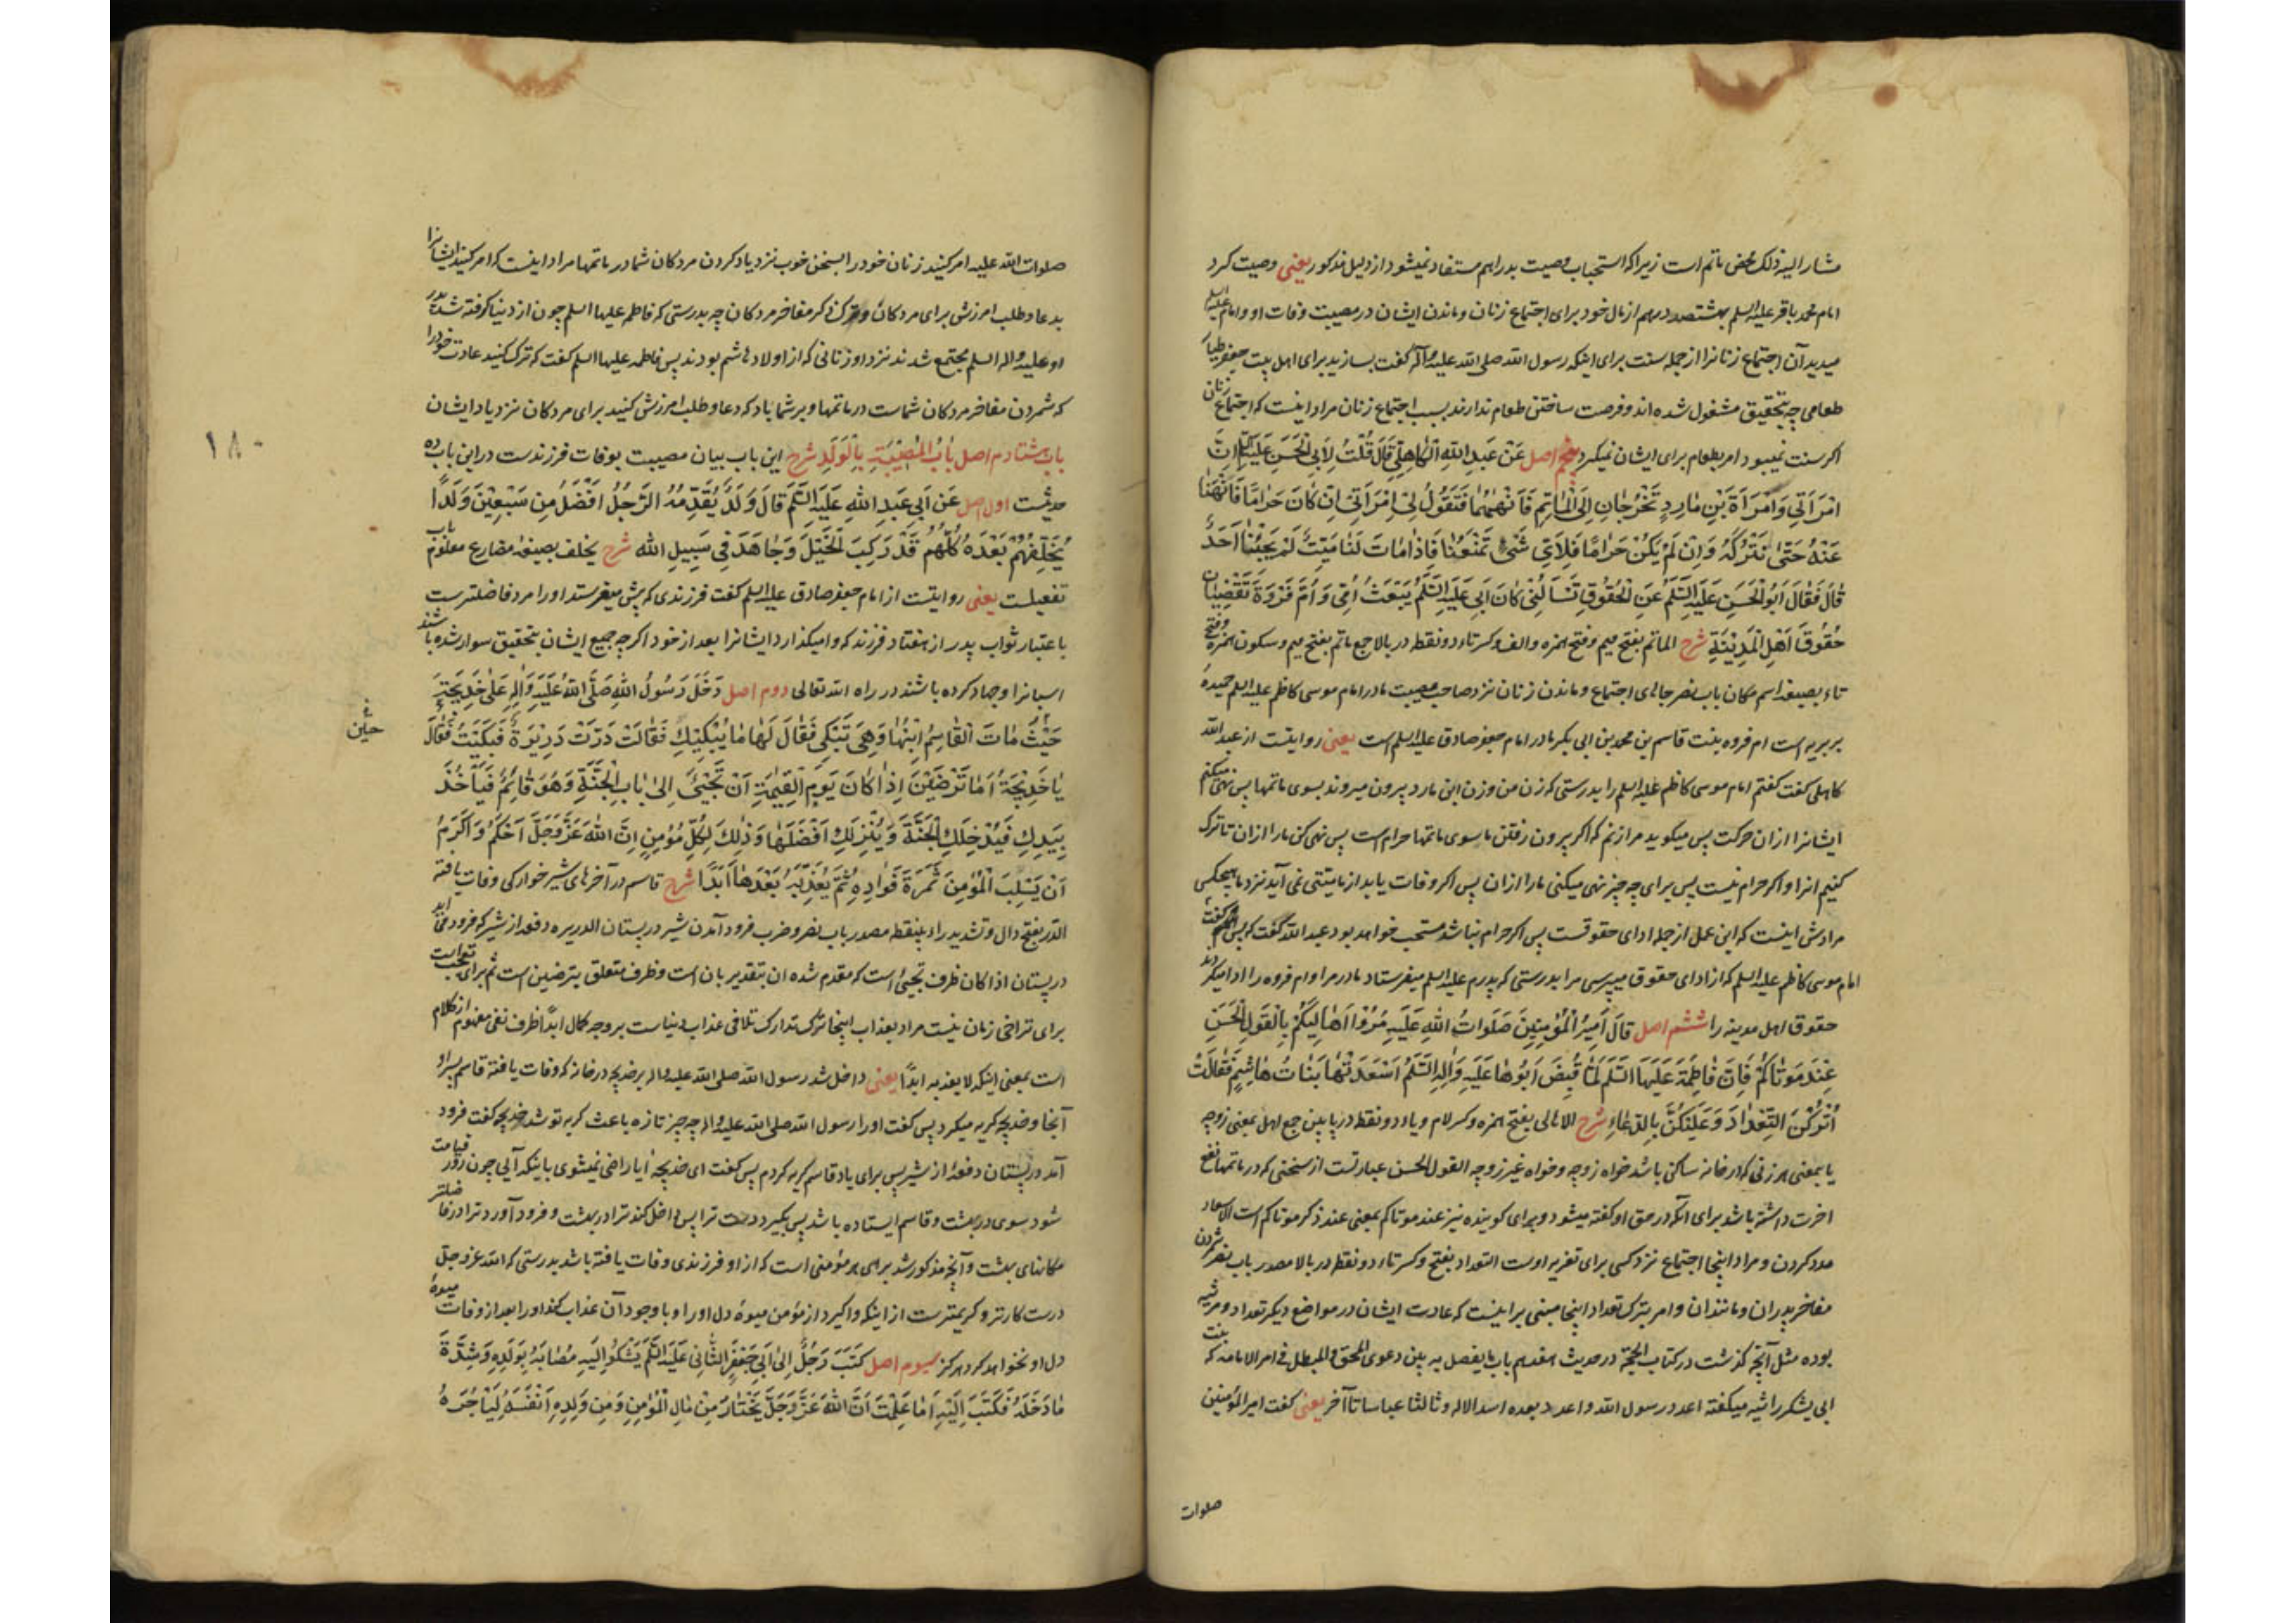 مشار الیه ذلک محض ماتم است زیرا که استحباب وصیت پدر اهم مستفاد نمیشود از دلیل مذکور یعنی وصیت کرد
امام محمد باقر علیه السلم بهشتصد درهم از مال خود برای اجتماع زنان و ماندن ایشان در مصیبت وفات او و امام علیه السلم
میدید آن اجتماع زنانرا از جمله سنت برای اینکه رسول الله صلی الله علیه وآله گفت بسازید برای اهل بیت جعفر طیار
طعامی چه بتحقیق مشغول شده اند و فرصت ساختن طعام ندارند بسبب اجتماع زنان مراد اینست که اجتماع زنان
اکر سنت نمیبود امر بطعام برای ایشان نمیکرد پنجم اصل عَنْ عَبدِ اللهِ الْكَاهِلِیِّ قَالَ قُلْتُ لِاَبِی الْحَسَنِ عَلَیْهِ السَّلَمُ اِنَّ
امْرَأَتِی وَامْرَأَةَ بْنِ مَارِدٍ تَخْرُجَانِ اِلَی الْمَاتِمِ فَاَنْهٰهُمَا فَتَقُولُ لِی امْرَأَتِی اِنْ كَانَ حَرَامًا فَانْهَنَا
عَنْهُ حَتّٰی نَتْرُكَهُ وَاِنْ لَمْ یَكُنْ حَرَامًا فَلِاَیِّ شَیْءٍ تَمْنَعُنَا فَاِذَا مَاتَ لَنَا مَیِّتٌ لَمْ یَجِئْنَا اَحَدٌ
قَالَ فَقَالَ اَبُو الْحَسَنِ عَلَیْهِ السَّلَمُ عَنِ الْحُقُوقِ تَسْأَلُنِی كَانَ اَبِی عَلَیْهِ السَّلَمُ یَبْعَثُ اُمِّی وَاُمَّ فَرْوَةَ تَقْضِیَانِ
حُقُوقَ اَهْلِ الْمَدِینَةِ شرح الماتم بفتح میم و فتح همزه والف و کسر تاء دو نقطه در بالا جمع ماتم بفتح میم و سکون همزه و فتح
تاء بصیغه اسم مکان باب نصر جاهای اجتماع و ماندن زنان نزد صاحب مصیبت مادر امام موسی کاظم علیه السلم حمیدهٔ
بربریه است ام فروه بنت قاسم بن محمد بن ابی بکر مادر امام جعفر صادق علیه السلم است یعنی روایتست از عبد الله
کاهلی گفت گفتم امام موسی کاظم علیه السلم را بدرستی که زن من و زن ابن مارد بیرون میروند بسوی ماتمها پس نهی میکنم
ایشانرا ازان حرکت پس میگوید مرا زنم که اکر بیرون رفتن ما سوی ماتمها حرام است پس نهی کن ما را ازان تا ترک
کنیم انرا و اکر حرام نیست پس برای چه چیز نهی میکنی ما را ازان پس اکر وفات یابد از ما میتی نمی آید نزد ما هیچکس
مرادش اینست که این عمل از جمله ادای حقوقست پس اکر حرام نباشد مستحب خواهد بود عبد الله گفت که پس گفت
امام موسی کاظم علیه السلم که از ادای حقوق میپرسی مرا بدرستی که پدرم علیه السلم میفرستاد مادر مرا و ام فروه را ادا میکردند
حقوق اهل مدینه را ششم اصل قَالَ اَمِیرُ الْمُؤْمِنِینَ صَلَوَاتُ اللهِ عَلَیْهِ مُرُوا اَهَالِیكُمْ بِالْقَوْلِ الْحَسَنِ
عِنْدَ مَوْتَاكُمْ فَاِنَّ فَاطِمَةَ عَلَیْهَا السَّلَمُ لَمَّا قُبِضَ اَبُوهَا عَلَیْهِ وَاٰلِهِ السَّلَمُ اَسْعَدَتْهَا بَنَاتُ هَاشِمٍ فَقَالَتْ
اُتْرُكْنَ التَّعْدَادَ وَعَلَیْكُنَّ بِالدُّعَاءِ شرح الاهالی بفتح همزه و کسر لام و یاء دو نقطه در پایین جمع اهل بمعنی زوجه
یا بمعنی هر زنی که در خانه ساکن باشد خواه زوجه و خواه غیر زوجه القول الحسن عبارتست از سخنی که در ماتمها نفع
اخرت داشته باشد برای آنکه در حق او گفته میشود و برای گوینده نیز عند موتاکم بمعنی عند ذکر موتاکم است الاسعاد
مدد کردن و مراد اینجا اجتماع نزد کسی برای تعزیه اوست التعداد بفتح و کسر تاء دو نقطه در بالا مصدر باب نصر شمردن
مفاخر پدران و مانند ان و امر بترک تعداد اینجا مبنی بر اینست که عادت ایشان در مواضع دیکر تعداد و مرثیه
بوده مثل آنچه گذشت در کتاب الحجة در حدیث هفدهم باب ما یفصل به بین دعوی المحق والمبطل فی امر الامامه که بنت
ابی یشکر راثیه میگفته اعدد رسول الله واعدد بعده اسد الاله وثالثا عباسا تا آخر یعنی گفت امیر المؤمنین
صلوات
صلوات الله علیه امر کنید زنان خود را بسخن خوب نزد یاد کردن مردکان شما در ماتمها مراد اینست که امر کنید ایشانرا
بدعا و طلب امرزش برای مردکان و ترک ذکر مفاخر مردکان چه بدرستی که فاطمه علیها السلم چون از دنیا گرفته شد پدر
او علیه واله السلم مجتمع شدند نزد او زنانی که از اولاد هاشم بودند پس فاطمه علیها السلم گفت که ترک کنید عادت خود را
که شمردن مفاخر مردکان شماست در ماتمها و بر شما باد که دعا و طلب امرزش کنید برای مردکان نزد یاد ایشان
باب هشتادم اصل بَابُ الْمُصِیبَةِ بِالْوَلَدِ شرح این باب بیان مصیبت بوفات فرزندست در این باب ده
حدیثست اول اصل عَنْ اَبِی عَبدِ اللهِ عَلَیْهِ السَّلَمُ قَالَ وَلَدٌ یُقَدِّمُهُ الرَّجُلُ اَفْضَلُ مِن سَبْعِینَ وَلَدًا
یُخَلِّفُهُمْ بَعْدَهُ كُلُّهُمْ قَدْ رَكِبَ الْخَیْلَ وَجَاهَدَ فِی سَبِیلِ الله شرح یخلف بصیغه مضارع معلوم باب
تفعیلست یعنی روایتست از امام جعفر صادق علیه السلم گفت فرزندی که پیش میفرستد اورا مرد فاضلترست
باعتبار ثواب پدر از هفتاد فرزند که وامیکذارد ایشانرا بعد از خود اکرچه جمیع ایشان بتحقیق سوار شده باشند
اسبانرا وجهاد کرده باشند در راه الله تعالی دوم اصل دَخَلَ رَسُولُ اللهِ صَلَّی اللهُ عَلَیْهِ وَاٰلِهِ عَلٰی خَدِیجَةَ
حَیْثُ مَاتَ الْقَاسِمُ ابْنُهَا وَهِیَ تَبْكِی فَقَالَ لَهَا مَا یُبْكِیكِ فَقَالَتْ دَرَّتْ دَرِیرَةٌ فَبَكَیْتُ فَقَالَ
حین
یَا خَدِیجَةُ اَمَا تَرْضَیْنَ اِذَا كَانَ یَوْمُ الْقِیٰمَةِ اَنْ تَجِیْئِی اِلٰی بَابِ الْجَنَّةِ وَهُوَ قَائِمٌ فَیَأْخُذَ
بِیَدِكِ فَیُدْخِلَكِ الْجَنَّةَ وَیُنْزِلَكِ اَفْضَلَهَا وَذٰلِكَ لِكُلِّ مُؤْمِنٍ اِنَّ اللهَ عَزَّ وَجَلَّ اَحْكَمُ وَاَكْرَمُ
اَنْ یَسْلُبَ الْمُؤْمِنَ ثَمَرَةَ فُؤَادِهِ ثُمَّ یُعَذِّبَهُ بَعْدَهَا اَبَدًا شرح قاسم در آخرهای شیر خوارکی وفات یافته
الدر بفتح دال و تشدید راء بینقطه مصدر باب نصر و ضرب فرود آمدن شیر در پستان الدریره دفعه از شیر که فرود می آید
در پستان اذا کان ظرف تجیئی است که مقدم شده ان بتقدیر بان است و ظرف متعلق بترضین است ثم برای تعجب است
برای تراخی زمان نیست مراد بعذاب اینجا ترک تدارک تلافی عذاب دنیاست بر وجه کمال ابدًا ظرف نفی مفهوم از کلام
است بمعنی اینکه لا یعذبه ابدًا یعنی داخل شد رسول الله صلی الله علیه واله بر خدیجه در خانه که وفات یافته قاسم پسر او
آنجا و خدیجه گریه میکرد پس گفت اورا رسول الله صلی الله علیه واله چه چیز تازه باعث گریه تو شد خدیجه گفت فرود
آمد در پستان دفعهٔ از شیر پس برای یاد قاسم گریه کردم پس گفت ای خدیجه ایا راضی نمیشوی باینکه آیی چون روز قیامت
شود سوی در بهشت و قاسم ایستاده باشد پس بگیرد دست ترا پس داخل کند ترا در بهشت و فرود آورد ترا در فاضلتر
مکانهای بهشت و آنچه مذکور شد برای هر مؤمنی است که از او فرزندی وفات یافته باشد بدرستی که الله عز و جل
درست کارتر و کریمترست از اینکه واگیرد از مؤمن میوهٔ دل اورا و با وجود آن عذاب کند اورا بعد از وفات میوهٔ
دل او نخواهد کرد هرکز سیوم اصل كَتَبَ رَجُلٌ اِلٰی اَبِی جَعْفَرٍ الثَّانِی عَلَیْهِ السَّلَمُ یَشْكُوْ اِلَیْهِ مُصَابَهُ بِوَلَدِهِ وَشِدَّةَ
مَا دَخَلَهُ فَكَتَبَ اِلَیْهِ اَمَا عَلِمْتَ اَنَّ اللهَ عَزَّ وَجَلَّ یَخْتَارُ مِنْ مَالِ الْمُؤْمِنِ وَمِن وَلَدِهِ اَنْفَسَهُ لِیَأْجُرَهُ
۱۸۰